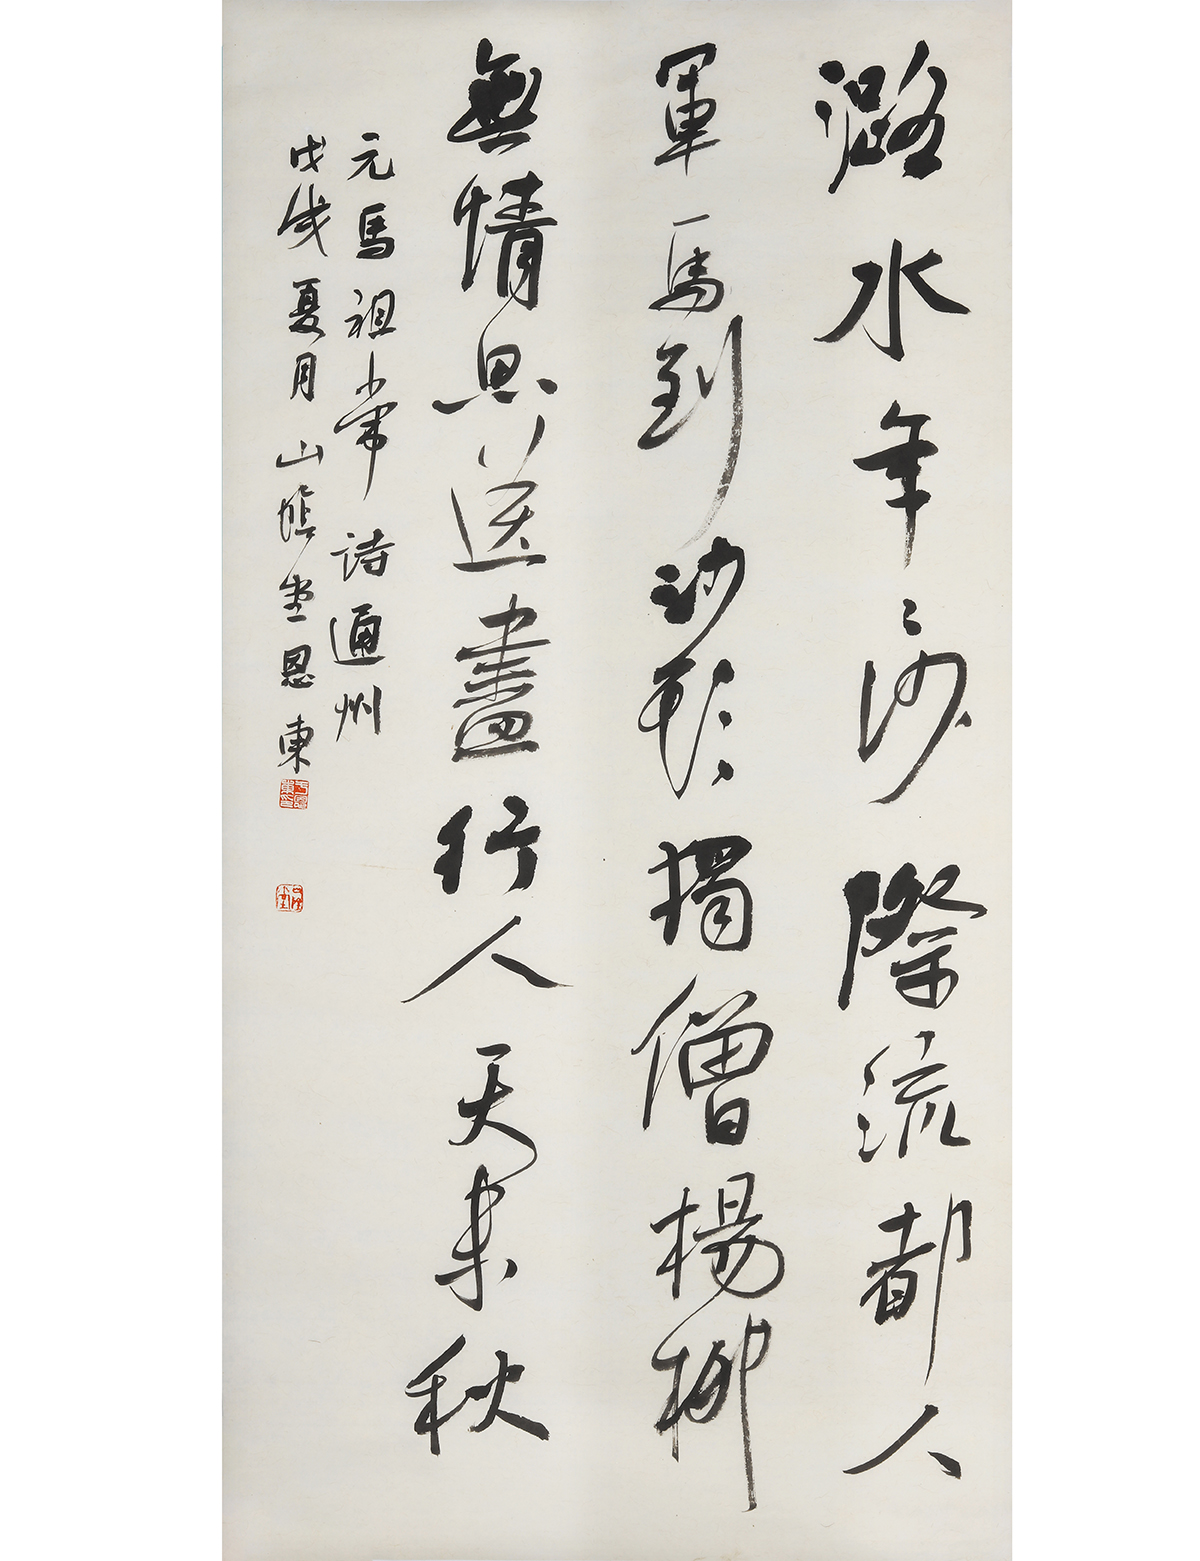 潞水年々沙際流都人
軍馬到沙頭獨僧楊柳
無情思送盡行人天未秋
元馬祖常詩通州
戊戌夏月山恩東